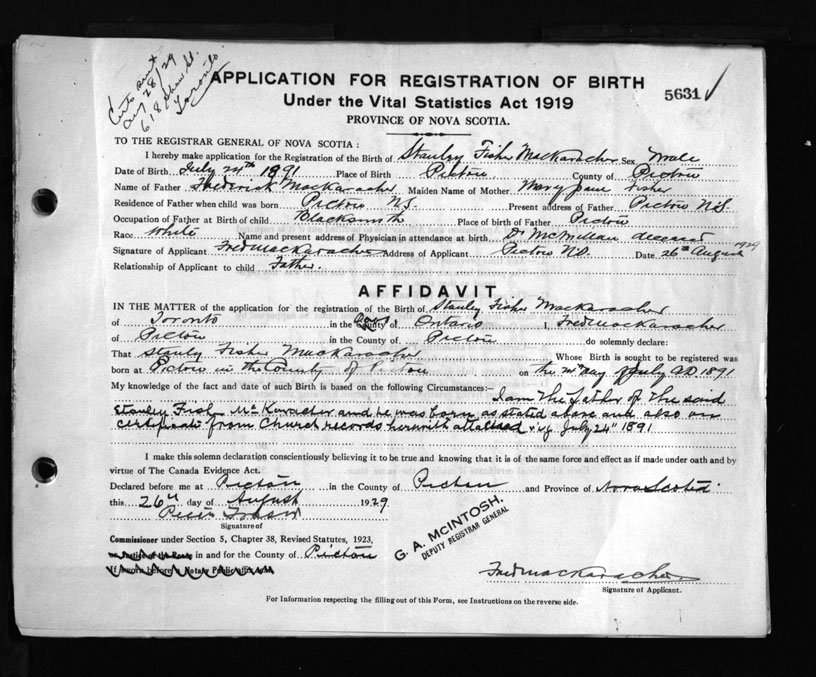 Certs sent
Aug 28/29
618 Shaw St.
Toronto
APPLICATION FOR REGISTRATION OF BIRTH
Under the Vital Statistics Act 1919
PROVINCE OF NOVA SCOTIA.
5631 ✓
TO THE REGISTRAR GENERAL OF NOVA SCOTIA:
I hereby make application for the Registration of the Birth of Stanley Fisher MacKaracher Sex Male
Date of Birth July 24th 1891 Place of Birth Pictou County of Pictou
Name of Father Frederick MacKaracher Maiden Name of Mother Mary Jane Fisher
Residence of Father when child was born Pictou N.S. Present address of Father Pictou N.S.
Occupation of Father at Birth of child Blacksmith Place of birth of Father Pictou
Race White Name and present address of Physician in attendance at birth Dr McMillan deceased
Signature of Applicant Fred MacKaracher Address of Applicant Pictou N.S. Date 26th August 1929
Relationship of Applicant to child Father.
AFFIDAVIT
IN THE MATTER of the application for the registration of the Birth of Stanley Fisher MacKaracher
of Toronto in the County of Ontario I, Fred MacKaracher
of Pictou in the County of Pictou do solemnly declare:
That Stanley Fisher MacKaracher Whose Birth is sought to be registered was
born at Pictou in the County of Pictou on the 24 day of July AD 1891
My knowledge of the fact and date of such Birth is based on the following Circumstances:— I am the father of the said
Stanley Fish. McKaracher and he was born as stated above and also
certificate from Church records herewith attached July 24" 1891
I make this solemn declaration conscientiously believing it to be true and knowing that it is of the same force and effect as if made under oath and by
virtue of The Canada Evidence Act.
Declared before me at Pictou in the County of Pictou and Province of Nova Scotia
this 26th day of August 1929
Peter Fraser
Signature of
Commissioner under Section 5, Chapter 38, Revised Statutes, 1923,
or Justice of the Peace in and for the County of Pictou
If sworn before a Notary Public affix seal
G. A. McINTOSH.
DEPUTY REGISTRAR GENERAL
Fred MacKaracher
Signature of Applicant.
For Information respecting the filling out of this Form, see Instructions on the reverse side.